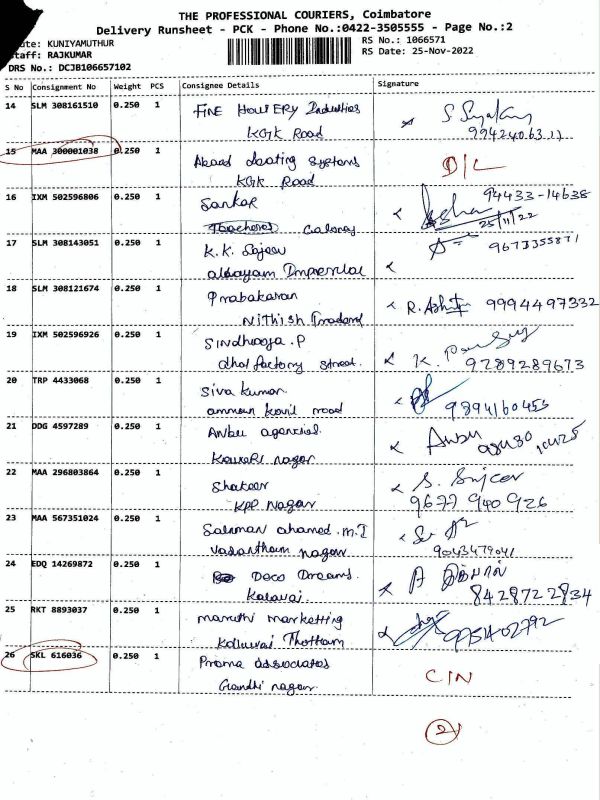 THE PROFESSIONAL COURIERS, Coimbatore
Delivery Runsheet - PCK - Phone No.:0422-3505555 - Page No.:2
KUNIYAMUTHUR
RS No.: 1066571
RAJKUMAR
RS Date: 25-Nov-2022
DRS No.: DCJB106657102
S No Consignment No Weight PCS Consignee Details Signature
14 SLM 308161510 0.250 1 FINE HOSIERY Industries
KGK Road
15 MAA 300001038 0.250 1 D/L
systems
KGK Road
16 IXM 502596806 0.250 1 Sankar 94433-14638
Colony 25/11/22
17 SLM 308143051 0.250 1 K.K. 9673355871
18 SLM 308121674 0.250 1 Prabakaran
Nithish R. 9994497332
19 IXM 502596926 0.250 1 Sindhooja.P
dhal factory street. K. 9289289673
20 TRP 4433068 0.250 1 Siva kumar.
amman kovil road 9894160455
21 DDG 4597289 0.250 1 Anbu agencies. Anbu
nagar
22 MAA 296803864 0.250 1 Shakeer S.
KPP Nagar 9677 940 926
23 MAA 567351024 0.250 1 Salman ahamed.M.I
Vasantham nagar 9043479041
24 EDQ 14269872 0.250 1 Deco Dreams.
Kalavai 8428722834
25 RKT 8893037 0.250 1 maruthi marketting
Thottam 99514-02792
26 SKL 616036 0.250 1 associates
Gandhi nagar C/N
2